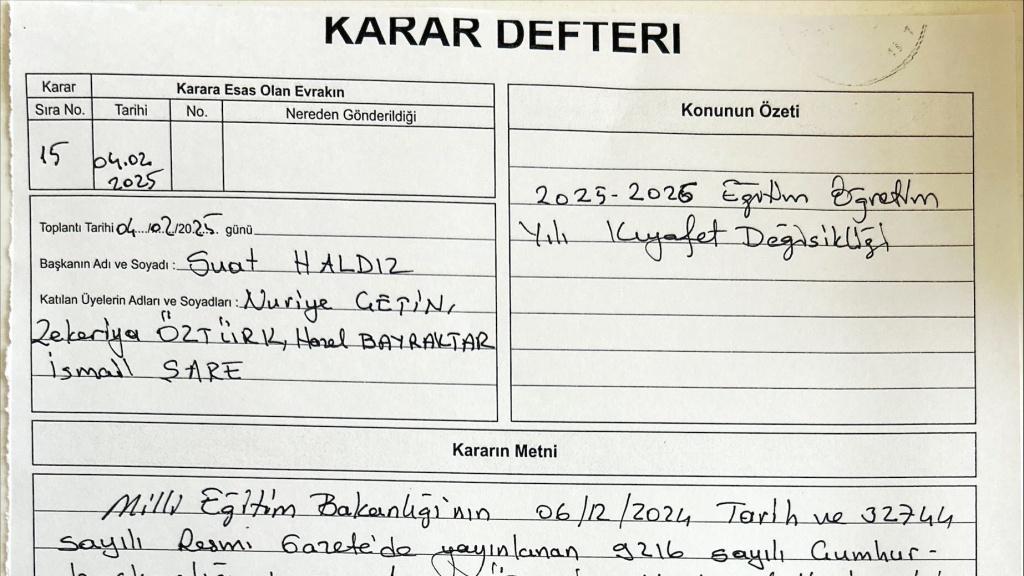 KARAR DEFTERİ
Karar
Karara Esas Olan Evrakın
Sıra No.
Tarihi
No.
Nereden Gönderildiği
15
04.02
2025
Konunun Özeti
2025-2026 Eğitim Öğretim
Yılı Kıyafet Değişikliği
Toplantı Tarihi 04../02./2025. günü
Başkanın Adı ve Soyadı : Suat HALDIZ
Katılan Üyelerin Adları ve Soyadları : Nuriye ÇETİN,
Zekeriya ÖZTÜRK, Hazel BAYRAKTAR
İsmail SARE
Kararın Metni
Milli Eğitim Bakanlığı'nın 06/12/2024 Tarih ve 32744
sayılı Resmi Gazete'de yayınlanan 9216 sayılı Cumhur-